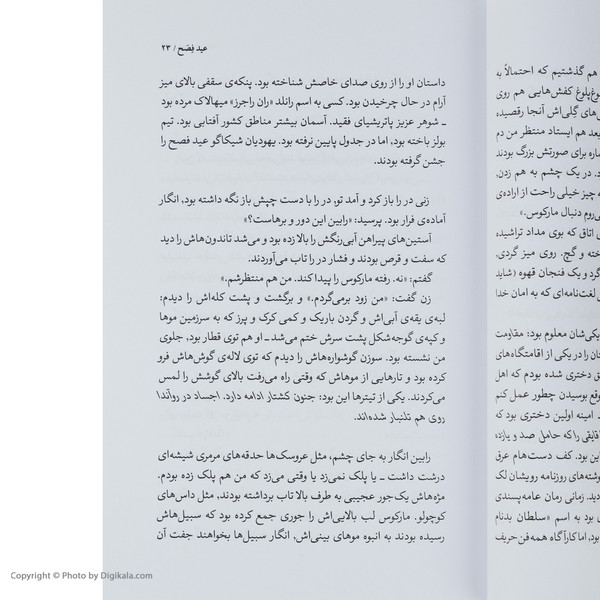 عید فِصَح / ۲۳
داستان او را از روی صدای خاصش شناخته بود. پنکه‌ی سقفی بالای میز
آرام در حال چرخیدن بود. کسی به اسم رانلد «ران راجرز» میهالاک مرده بود
ــ شوهر عزیز پاتریشیای فقید. آسمان بیشتر مناطق کشور آفتابی بود. تیم
بولز باخته بود، اما در جدول پایین نرفته بود. یهودیان شیکاگو عید فصح را
جشن گرفته بودند.
زنی در را باز کرد و آمد تو، در را با دست چپش باز نگه داشته بود، انگار
آماده‌ی فرار بود. پرسید: «رابین این دور و برهاست؟»
آستین‌های پیراهن آبی‌رنگش را بالا زده بود و می‌شد تاندون‌هاش را دید
که سفت و قرص بودند و فشار در را تاب می‌آوردند.
گفتم: «نه. رفته مارکوس را پیدا کند. من هم منتظرشم.»
زن گفت: «من زود برمی‌گردم.» و برگشت و پشت کله‌اش را دیدم:
لبه‌ی یقه‌ی آبی‌اش و گردن باریک و کمی کرک و پرز که به سرزمین موها
و کپه‌ی گوجه‌شکل پشت سرش ختم می‌شد ــ او هم توی قطار بود، جلوی
من نشسته بود. سوزن گوشواره‌هاش را دیدم که توی لاله‌ی گوش‌هاش فرو
کرده بود و تارهایی از موهاش که وقتی راه می‌رفت بالای گوشش را لمس
می‌کردند. یکی از تیترها این بود: جنون کشتار ادامه دارد. اجساد در رواندا
روی هم تلنبار شده‌اند.
رابین انگار به جای چشم، مثل عروسک‌ها حدقه‌های مرمری شیشه‌ای
درشت داشت ــ یا پلک نمی‌زد یا وقتی می‌زد که من هم پلک زده بودم.
مژه‌هاش یک‌جور عجیبی به طرف بالا تاب برداشته بودند، مثل داس‌های
کوچولو. مارکوس لب بالایی‌اش را جوری جمع کرده بود که سبیل‌هاش
رسیده بودند به انبوه موهای بینی‌اش، انگار سبیل‌ها بخواهند جفت آن
هم گذشتیم که احتمالاً به
کفش‌هایی هم روی
گِلی‌اش آنجا رقصیده
بعد هم ایستاد منتظر من دم
ماره برای صورتش بزرگ بودند
د. در یک چشم به هم زدن،
چیز خیلی راحت از اراده‌ی
می‌روم دنبال مارکوس.»
اتاق که بوی مداد تراشیده
و گچ. روی میز گردی،
گرد و یک فنجان قهوه (شاید
لغت‌نامه‌ای که به امان خدا
یکی‌شان معلوم بود: مقاومت
را در یکی از اقامتگاه‌های
دختری شده بودم که اهل
بوسیدن چطور عمل کنم
امینه اولین دختری بود که
قایقی را که حامل صد و یازده
این بود. کف دست‌هام عرق
نوشته‌های روزنامه رویشان لک
دید. زمانی رمان عامه‌پسندی
بود به اسم «سلطان بدنام
بود، اما کارآگاه همه فن حریف
Copyright © Photo by Digikala.com